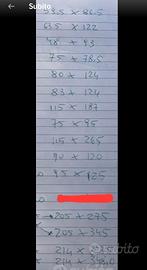 Subito
53.5 x 86.5
63.5 x 122
48 x 93
75 x 78.5
80 x 124
83 x 124
115 x 187
75 x 95
115 x 265
90 x 120
95 x 125
205 x 275
205 x 345
214 x
214 x
subito